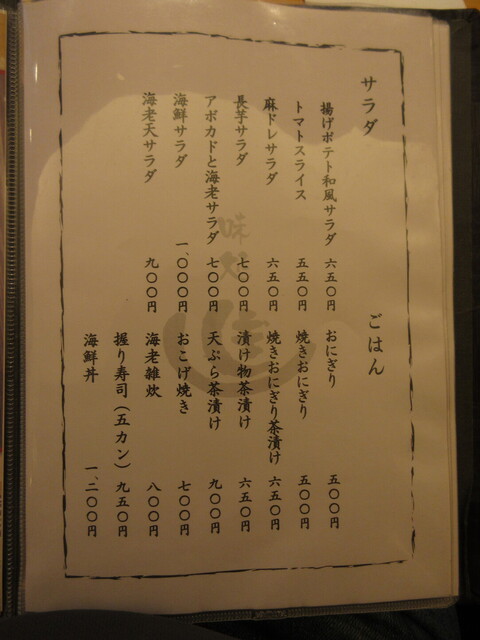 サラダ
揚げポテト和風サラダ 六五〇円
トマトスライス 五五〇円
麻ドレサラダ 六五〇円
長芋サラダ 七〇〇円
アボカドと海老サラダ 七〇〇円
海鮮サラダ 一、〇〇〇円
海老天サラダ 九〇〇円
ごはん
おにぎり 五〇〇円
焼きおにぎり 五〇〇円
焼きおにぎり茶漬け 六五〇円
漬け物茶漬け 六五〇円
天ぷら茶漬け 九〇〇円
おこげ焼き 七〇〇円
海老雑炊 八〇〇円
握り寿司（五カン） 九五〇円
海鮮丼 一、二〇〇円
味